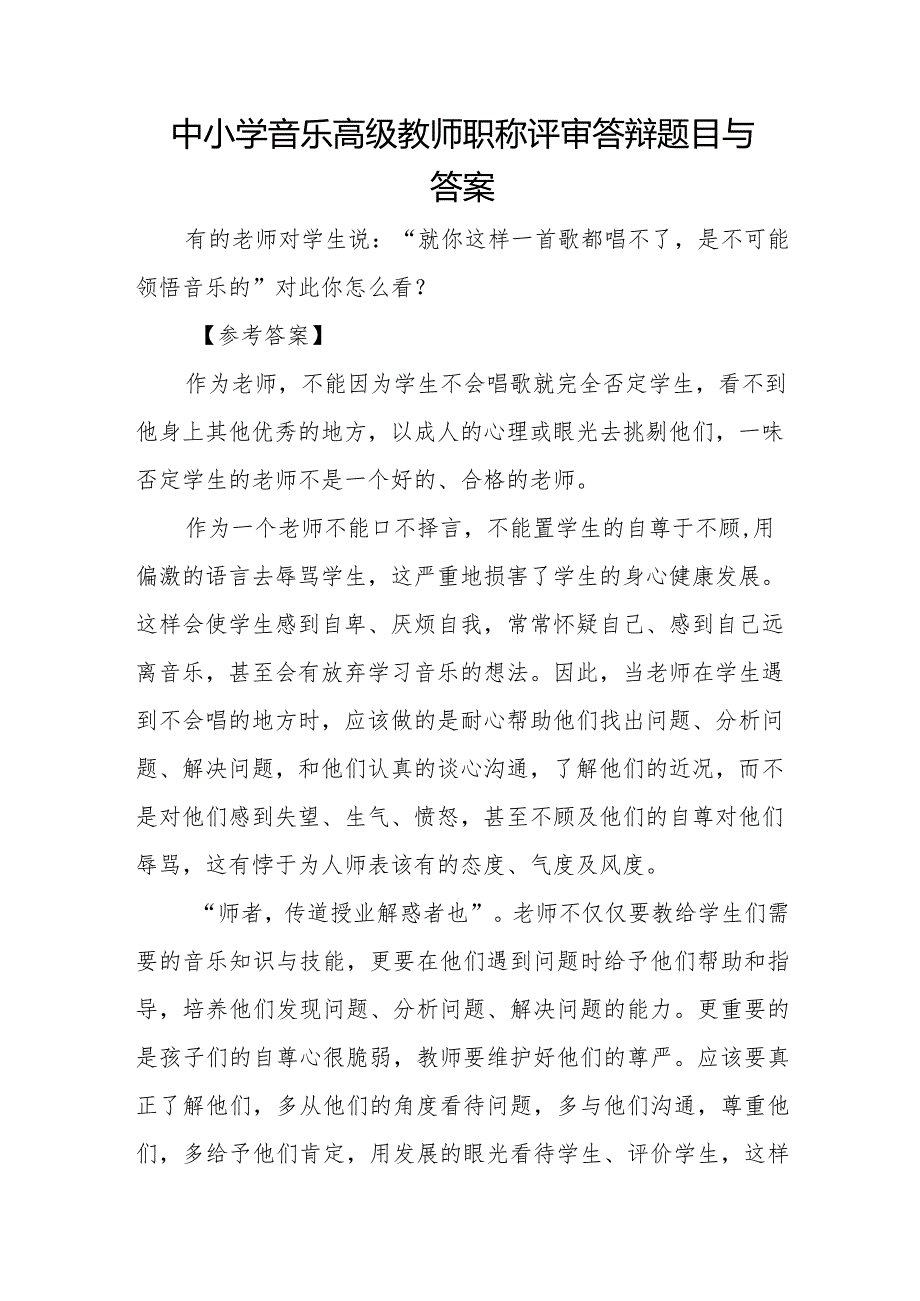 中小学音乐高级教师职称评审答辩题目与
答案
有的老师对学生说：“就你这样一首歌都唱不了，是不可能
领悟音乐的”对此你怎么看？
【参考答案】
作为老师，不能因为学生不会唱歌就完全否定学生，看不到
他身上其他优秀的地方，以成人的心理或眼光去挑剔他们，一味
否定学生的老师不是一个好的、合格的老师。
作为一个老师不能口不择言，不能置学生的自尊于不顾,用
偏激的语言去辱骂学生，这严重地损害了学生的身心健康发展。
这样会使学生感到自卑、厌烦自我，常常怀疑自己、感到自己远
离音乐，甚至会有放弃学习音乐的想法。因此，当老师在学生遇
到不会唱的地方时，应该做的是耐心帮助他们找出问题、分析问
题、解决问题，和他们认真的谈心沟通，了解他们的近况，而不
是对他们感到失望、生气、愤怒，甚至不顾及他们的自尊对他们
辱骂，这有悖于为人师表该有的态度、气度及风度。
“师者，传道授业解惑者也”。老师不仅仅要教给学生们需
要的音乐知识与技能，更要在他们遇到问题时给予他们帮助和指
导，培养他们发现问题、分析问题、解决问题的能力。更重要的
是孩子们的自尊心很脆弱，教师要维护好他们的尊严。应该要真
正了解他们，多从他们的角度看待问题，多与他们沟通，尊重他
们，多给予他们肯定，用发展的眼光看待学生、评价学生，这样